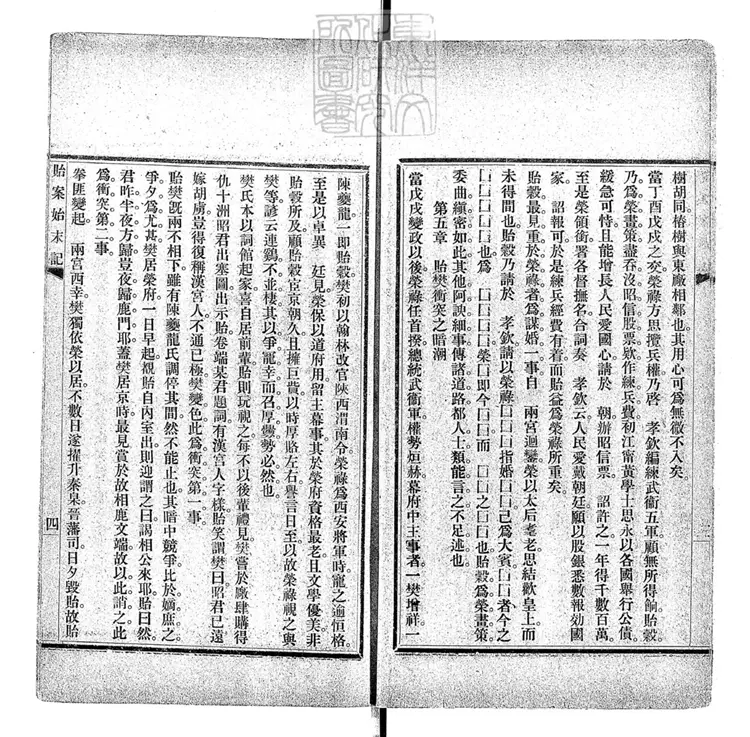 樹胡同椿樹與東廠相鄰也其用心可爲無微不入矣
當丁酉戊戌之交榮祿方思攬兵權乃啓 孝欽編練武衞五軍顧無所得餉貽穀
乃爲榮畫策盡吞沒昭信股票欵作練兵費初江甯黃學士思永以各國舉行公債
緩急可恃且能增長人民愛國心請於 朝辦昭信票 詔許之一年得千數百萬
至是榮領銜署各督撫名合詞奏 孝欽云人民愛戴朝廷願以股銀悉數報効國
家 詔報可於是練兵經費有着而貽益爲榮祿所重矣
貽穀最見重於榮祿者爲謀婚一事自 兩宮迴鑾榮以太后耄老思結歡皇上而
未得間也貽穀乃請於 孝欽請以榮祿囗囗囗指婚囗囗囗己爲大賓囗囗者今之
囗囗囗囗囗也爲 囗囗囗囗榮囗即今囗囗而 囗囗之囗囗囗也貽穀爲榮畫策
委曲縝密如此其他阿諛細事傳諸道路都人士類能言之不足述也
第五章 貽樊衝突之暗潮
當戊戌變政以後榮祿任首揆總統武衞軍權勢烜赫幕府中主事者一樊增祥一
陳夔龍一即貽穀樊初以翰林改官陝西渭南令榮祿爲西安將軍時寵之逈恒格
至是以卓異 廷見榮保以道府用留主幕事其於榮府資格最老且文學優美非
貽穀所及顧貽穀官京朝久且擁巨貲以時厚賂左右譽言日至以故榮祿視之與
樊等諺云連鷄不並棲其以爭寵幸而召厚釁勢必然也
樊氏本以詞館起家喜自居前輩貽則玩視之每不以後輩禮見樊嘗於廠肆購得
仇十洲昭君出塞圖出示貽卷端某君題詞有漢宮人字樣貽笑謂樊曰昭君已遠
嫁胡虜豈得復稱漢宮人不通已極樊變色此爲衝突第一事
貽樊旣兩不相下雖有陳夔龍氏調停其間然不能止也其暗中競爭比於嫡庶之
爭夕爲尤甚樊居榮府一日早起覩貽自內室出則迎謂之曰謁相公來耶貽曰然
君昨半夜方歸豈夜歸鹿門耶蓋樊居京時最見賞於故相鹿文端故以此誚之此
爲衝突第二事
拳匪變起 兩宮西幸樊獨依榮以居不數日遂擢升秦臬晉藩司日夕毀貽故貽
貽案始末記
四